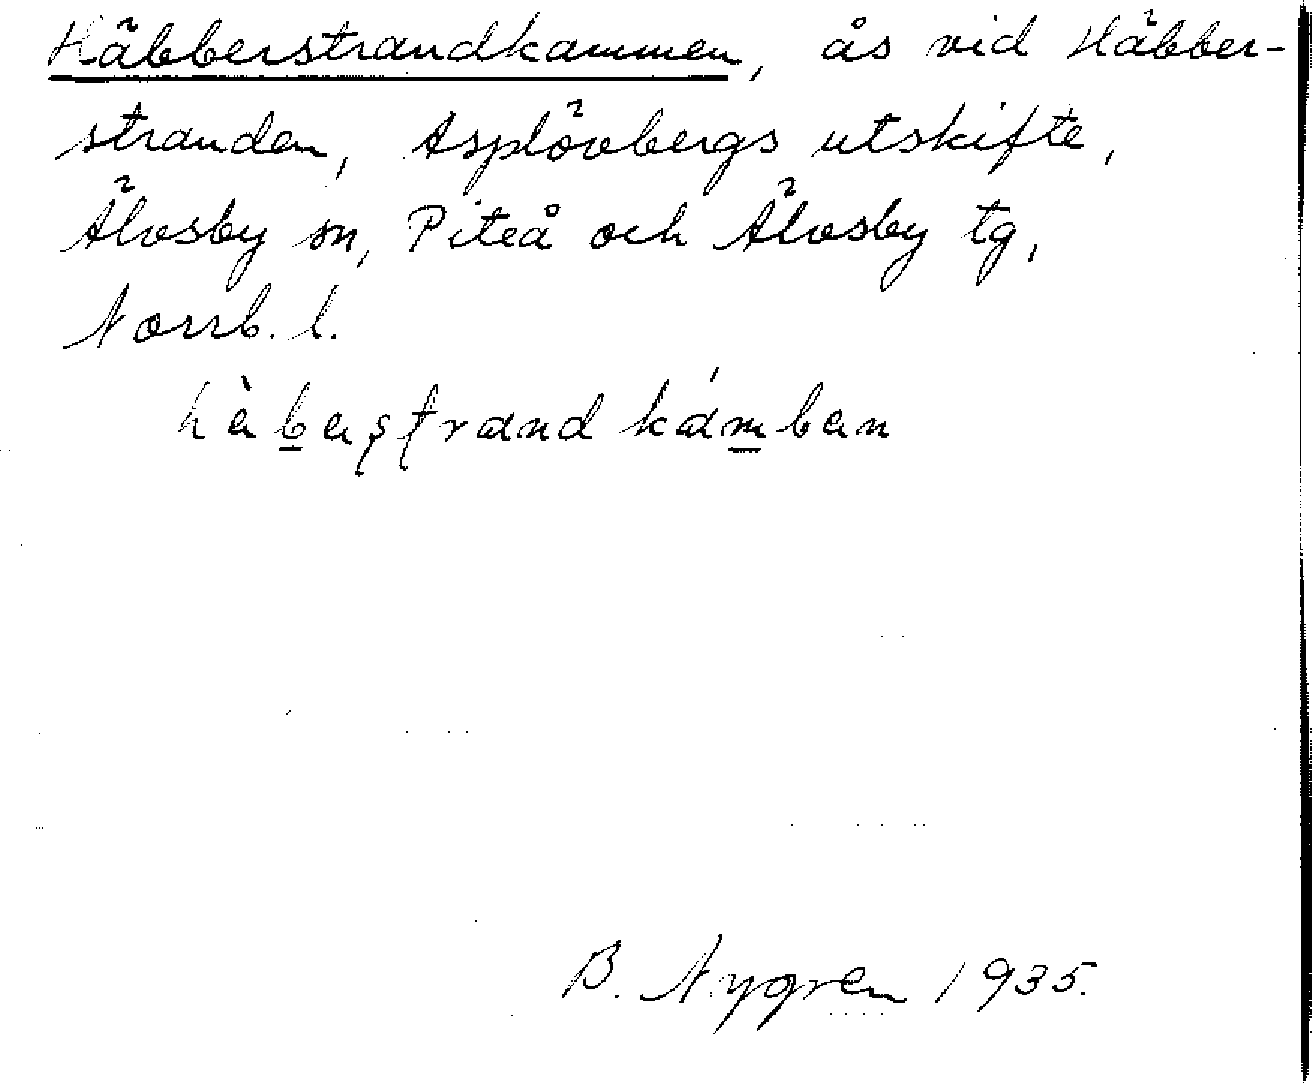 Häbberstrandkammen, ås vid Häbber-
stranden, Asplövbergs utskifte,
Älvsby sn, Piteå och Älvsby tg,
Norrb. l.
hàb̲erʂʈrand kám̲ban
B. Nygren 1935.